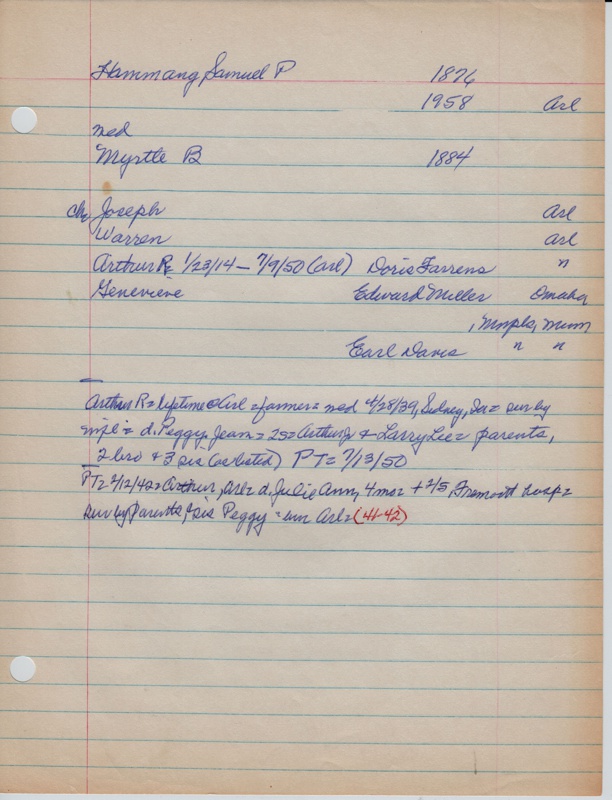 Hammang Samuel P 1876
1958 Arl
med
Myrtle B 1884
Chr Joseph Arl
Warren Arl
Arthur R= 1/23/14 – 7/9/50 (Arl) Doris Farrens "
Genevieve Edward Miller Omaha
, Mnpls, Minn
Earl Davis " "
Arthur R= lifetime @ Arl = farmer = med 4/28/39, Sidney, Ia = sur by
wife = d. Peggy Jean = 2s = Arthur Jr & Larry Lee = parents,
2 bro & 3 sis (as listed) PT= 7/13/50
PT= 2/12/42= Arthur, Arl= d. Julie Ann, 4 mos = + 2/5, Fremont hosp=
sur by parents, sis Peggy = Arl= (41-42)